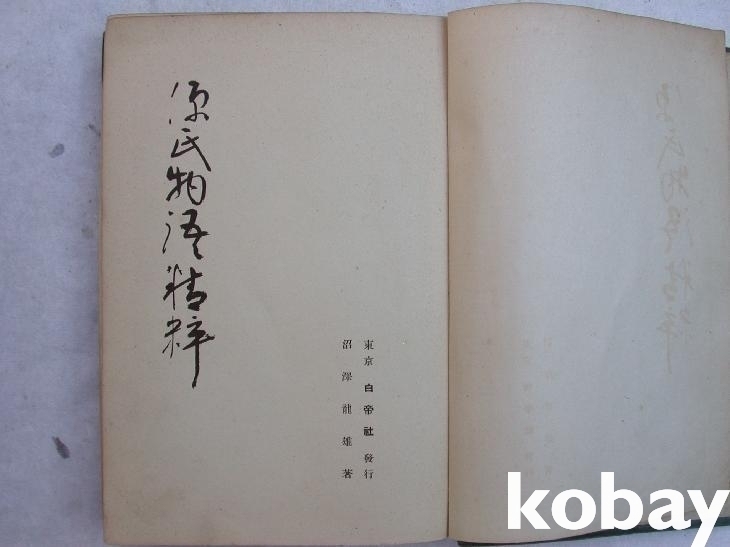 源氏物語精粹
東京 白帝社 發行
沼澤龍雄著
kobay